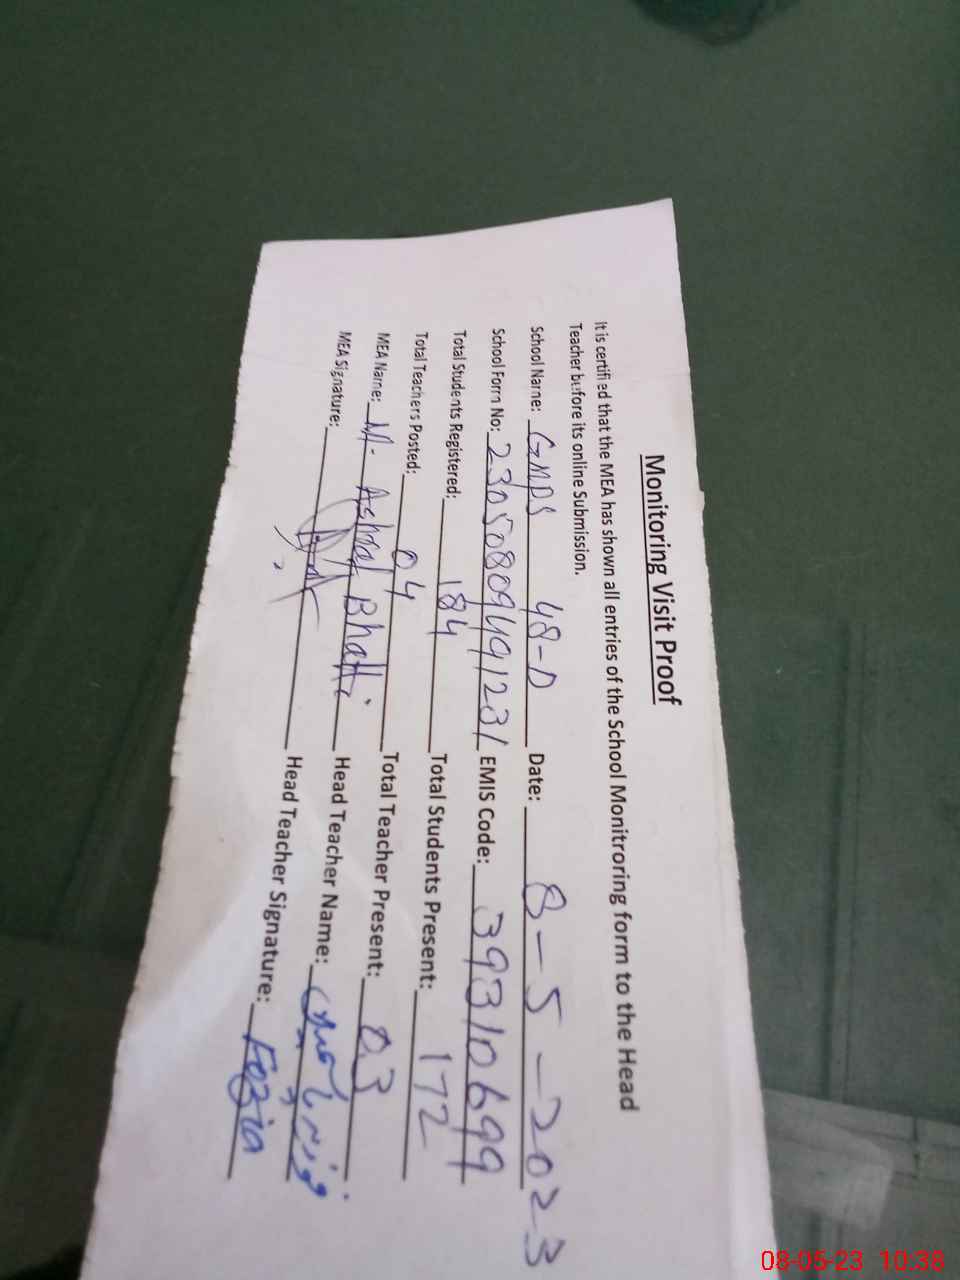 Monitoring Visit Proof
It is certified that the MEA has shown all entries of the School Monitroring form to the Head
Teacher before its online Submission.
School Name: GMPS 48-D Date: 8-5-2023
School Form No: 23050809491231 EMIS Code: 39310699
Total Students Registered: 184 Total Students Present: 172
Total Teachers Posted: 04 Total Teacher Present: 03
MEA Name: M. Ashraf Bhatti Head Teacher Name: فوزیہ
MEA Signature: Head Teacher Signature: Fozia
08-05-23 10:38